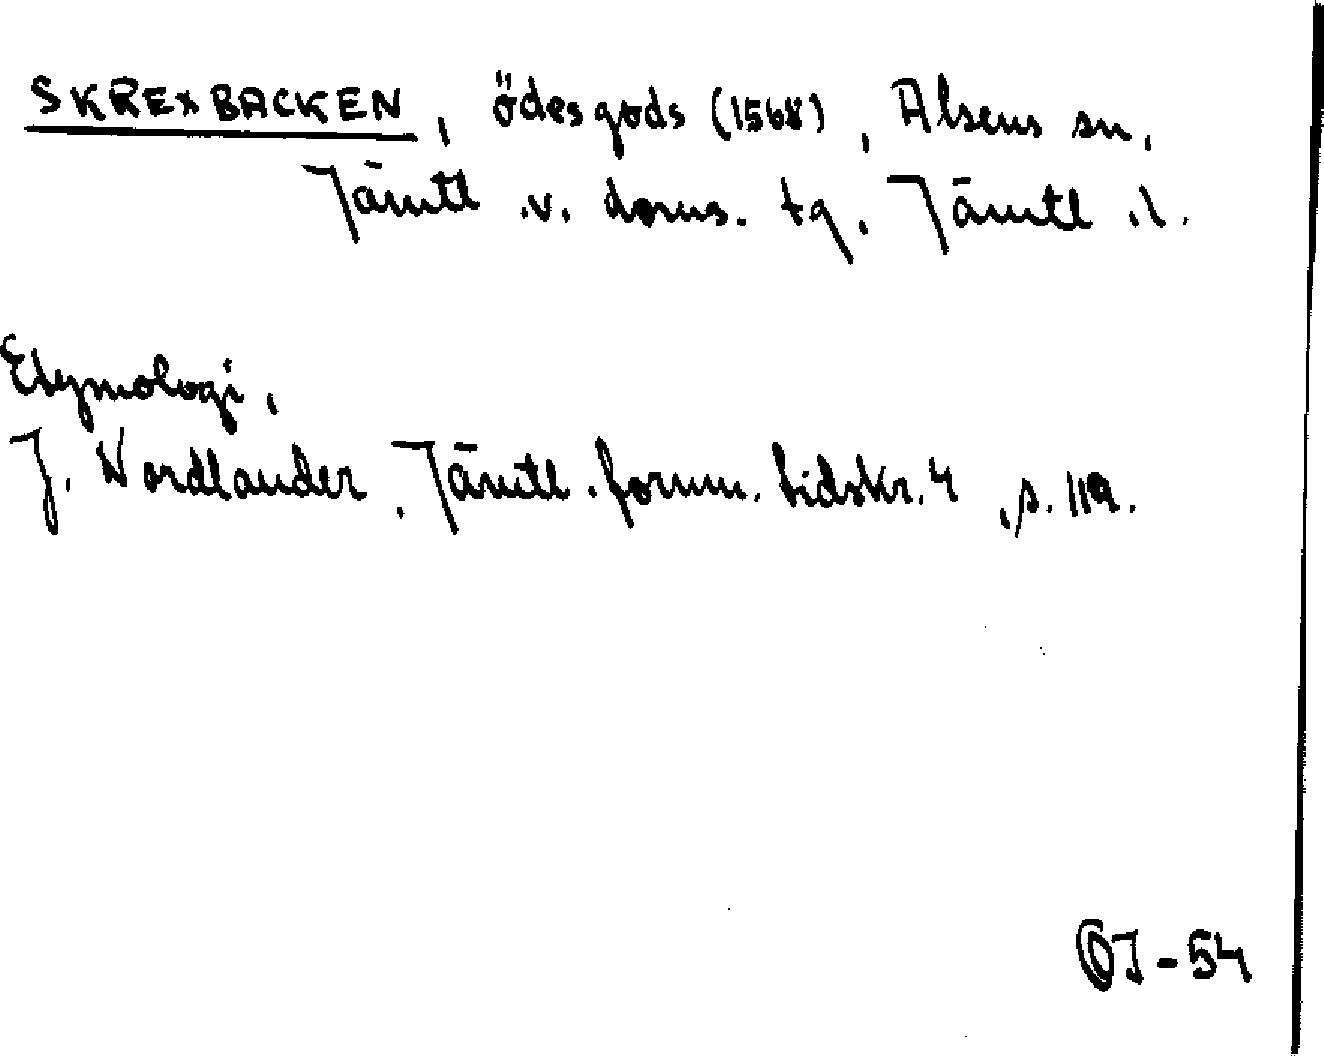 SKREXBACKEN, ödesgods (1568), Alsens sn,
Jämtl.v. doms. tg, Jämtl.l.
Etymologi,
J. Nordlander, Jämtl. fornm. tidskr. 4, s. 119.
OJ-54